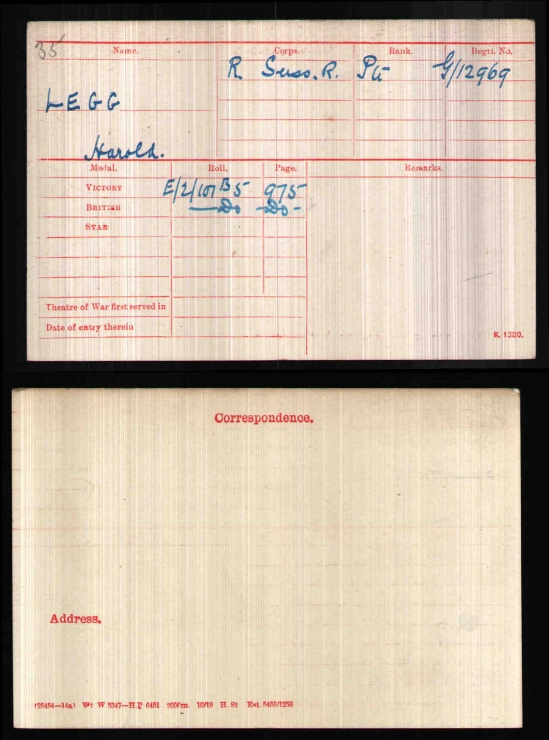 35
Name. Corps. Rank. Regtl. No.
R. Suss. R. Pte G/12969
LEGG
Harold.
Medal. Roll. Page. Remarks.
VICTORY E/2/107 B5 975
BRITISH —Do —Do—
STAR
Theatre of War first served in
Date of entry therein
K. 1380.
Correspondence.
Address.
W 5347—H.P 6451 10/19 H. St